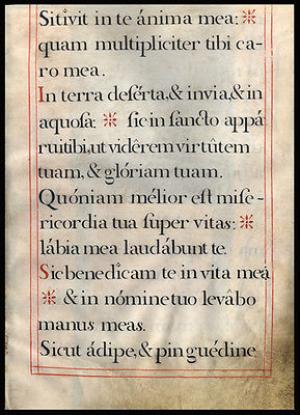 Sitivit in te ánima mea: ✻
quam multipliciter tibi ca-
ro mea.
In terra deſérta, & invia, & in
aquoſa: ✻ ſic in ſancto appá
ruitibi, ut vidêrem virtûtem
tuam, & glóriam tuam.
Quóniam mélior eſt miſe-
ricordia tua ſuper vitas: ✻
lábia mea laudábunt te.
Sic benedicam te in vita meá
✻ & in nómine tuo levâbo
manus meas.
Sicut ádipe, & pinguédine